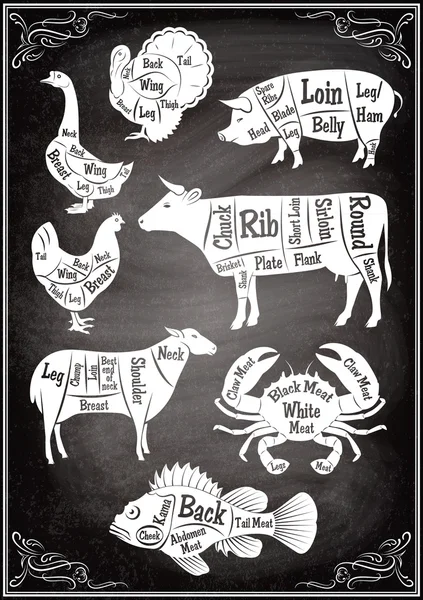 Neck
Back
Tail
Wing
Breast
Leg
Thigh
Spare
Ribs
Loin
Leg/
Ham
Blade
Head
Leg
Belly
Hock
Neck
Back
Breast
Wing
Tail
Leg
Thigh
Chuck
Rib
Short Loin
Sirloin
Round
Brisket
Plate
Flank
Shank
Shank
Tail
Back
Neck
Wing
Breast
Thigh
Leg
Leg
Chump
Loin
Best
end
of
neck
Shoulder
Neck
Breast
Claw Meat
Claw Meat
Black Meat
White
Meat
Legs
Meat
Kama
Back
Cheek
Tail Meat
Abdomen
Meat